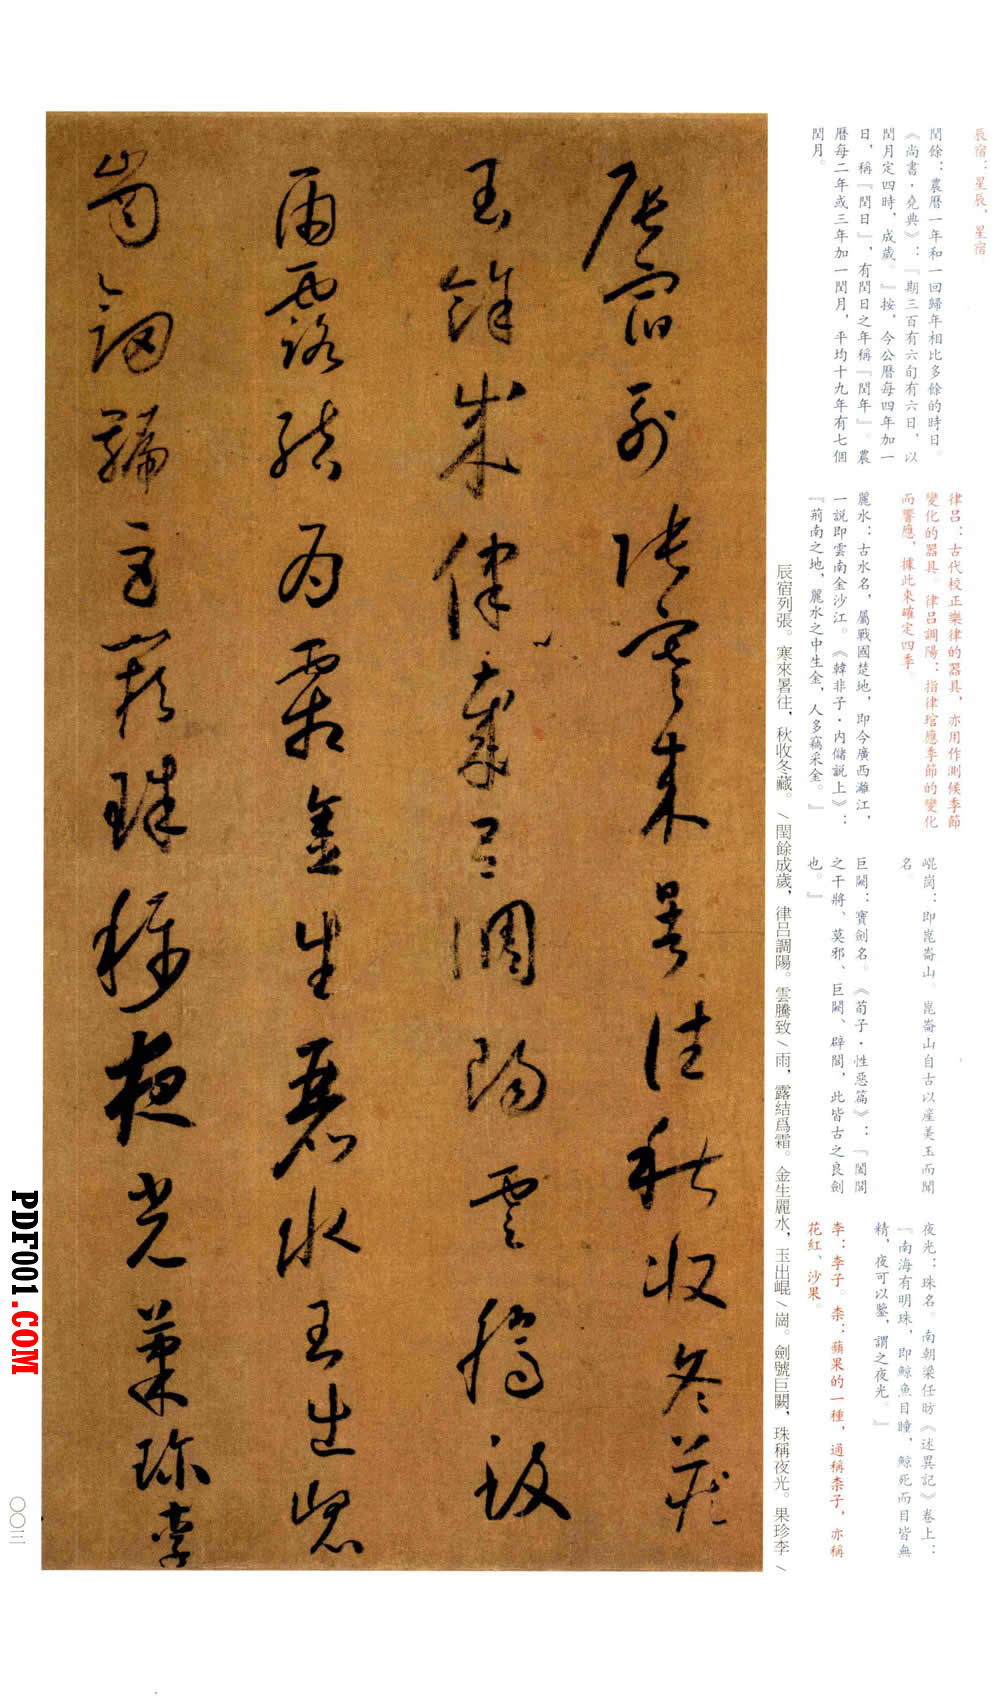 辰宿：星辰，星宿
閏餘：農曆一年和一回歸年相比多餘的時日。
《尚書·堯典》：『期三百有六旬有六日，以
閏月定四時，成歲。』按，今公曆每四年加一
日，稱『閏日』，有閏日之年稱『閏年』。農
曆每二年或三年加一閏月，平均十九年有七個
閏月。
律呂：古代校正樂律的器具，亦用作測候季節
變化的器具。律呂調陽：指律琯應季節的變化
而響應，據此來確定四季。
麗水：古水名，屬戰國楚地，即今廣西灕江，
一説即雲南金沙江。《韓非子·内儲説上》：
『荊南之地，麗水之中生金，人多竊采金。』
崐崗：即崑崙山。崑崙山自古以産美玉而聞
名。
巨闕：寶劍名。《荀子·性惡篇》：『闔閭
之干將、莫邪、巨闕、辟閭，此皆古之良劍
也。』
夜光：珠名。南朝梁任昉《述異記》卷上：
『南海有明珠，即鯨魚目瞳，鯨死而目皆無
精，夜可以鑒，謂之夜光。』
李：李子。柰：蘋果的一種，通稱柰子，亦稱
花紅、沙果。
辰宿列張。寒來暑往，秋收冬藏。/閏餘成歲，律吕調陽。雲騰致/雨，露結爲霜。金生麗水，玉出崐/崗。劍號巨闕，珠稱夜光。果珍李/
辰宿列張寒來暑往秋收冬藏
閏餘成歲律吕調陽雲騰致
雨露結為霜金生麗水玉出崐
崗劍號巨闕珠稱夜光菓珍李
PDF001.COM
〇〇三